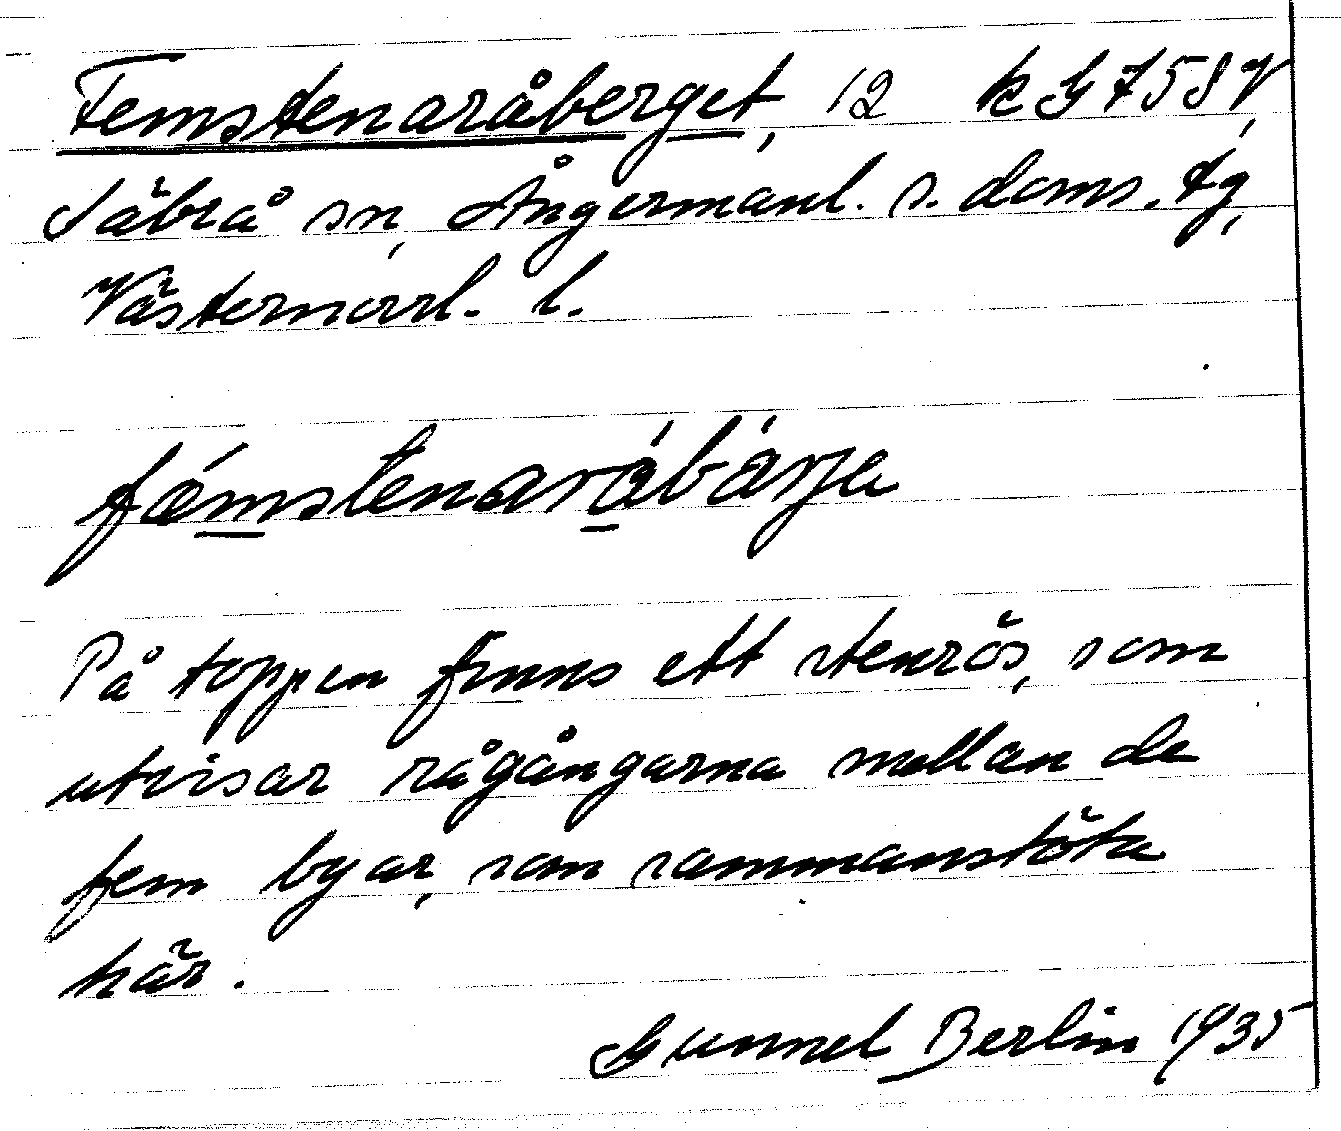 Femstenaråberget, 12 k G 758 V,
Säbrå sn, Ångermanl. s. doms. tg,
Västernorrl. l.
fǽmstenaråbárja
På toppen finns ett stenrös, som
utvisar rågångarna mellan de
fem byar, som sammanstöta
här.
Gunnel Berlin 1935